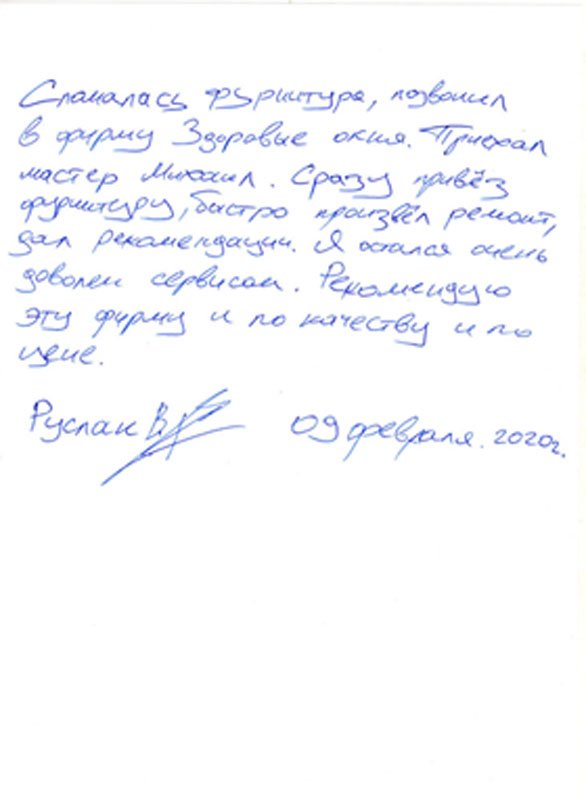 Сломалась фурнитура, позвонил
в фирму Здоровые окна. Приехал
мастер Михаил. Сразу привёз
фурнитуру, быстро произвёл ремонт,
дал рекомендации. Я остался очень
доволен сервисом. Рекомендую
эту фирму и по качеству и по
цене.
Руслан В. 09 февраля. 2020г.